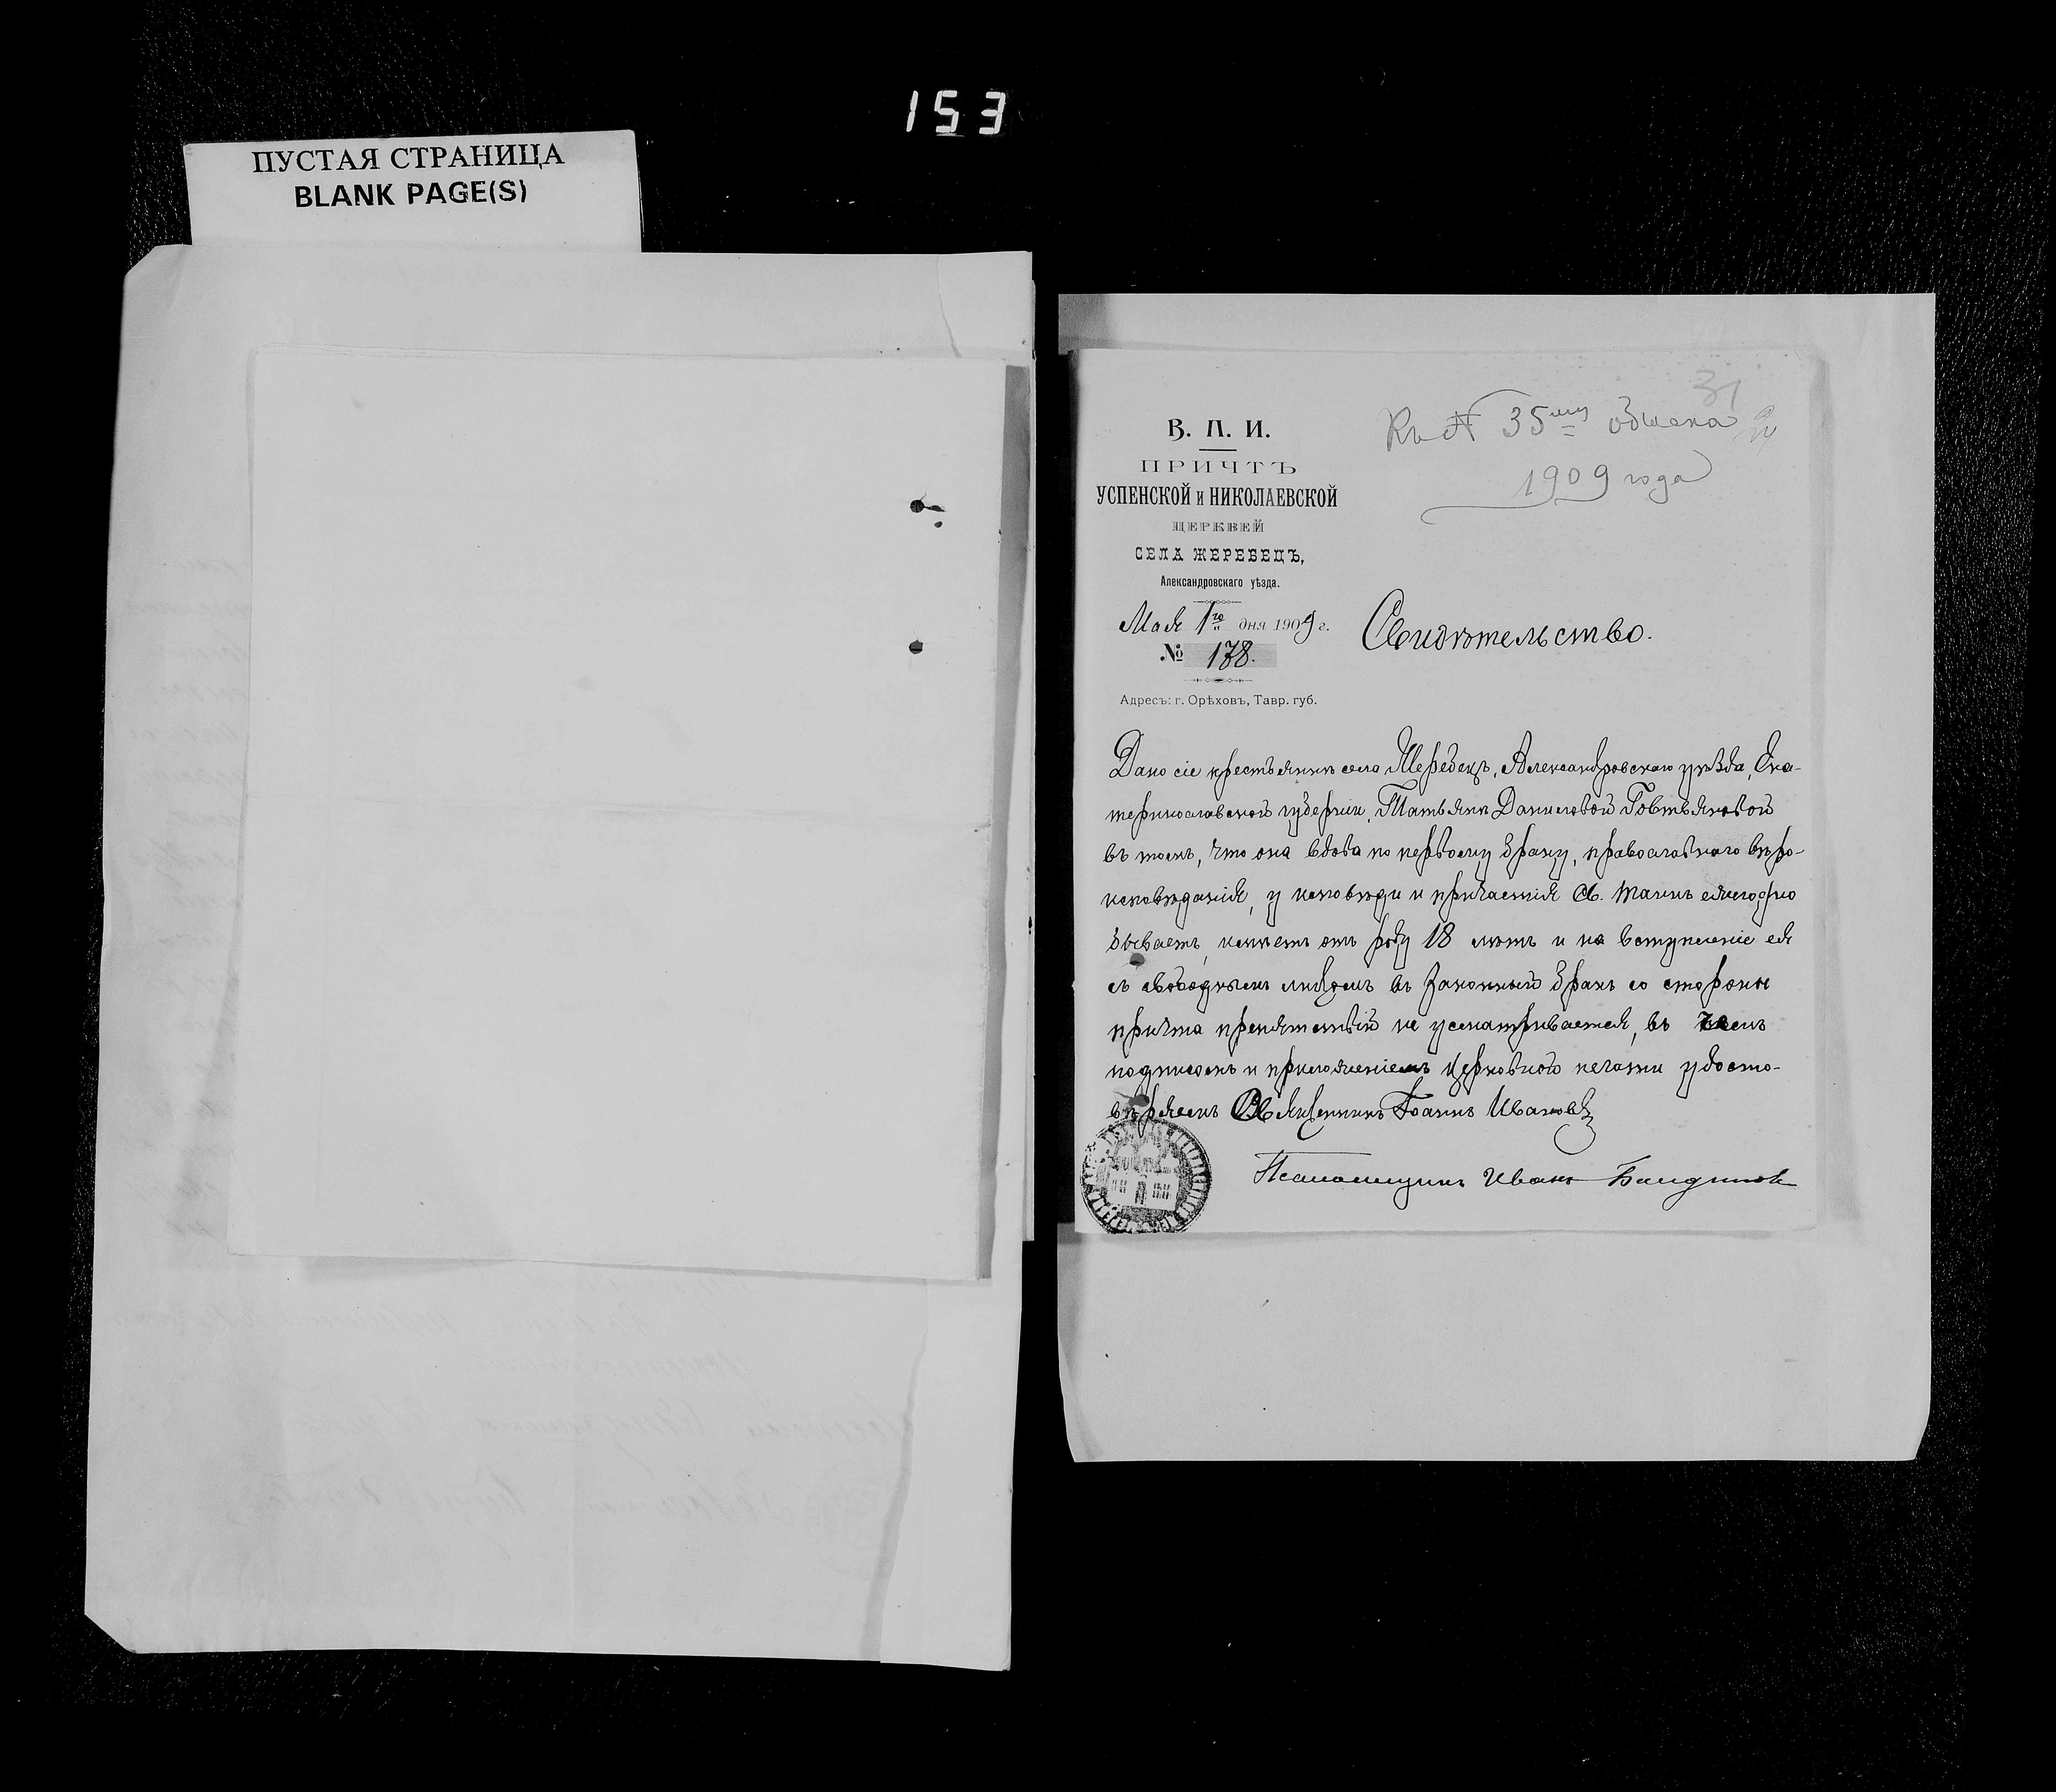 153
ПУСТАЯ СТРАНИЦА
BLANK PAGE(S)
31
Къ № 35му обыска
1909 года
В. П. И.
ПРИЧТЪ
УСПЕНСКОЙ и НИКОЛАЕВСКОЙ
ЦЕРКВЕЙ
СЕЛА ЖЕРЕБЕЦЪ,
Александровскаго уѣзда.
Мая 1го дня 1909 г.
№ 178.
Адресъ: г. Орѣховъ, Тавр. губ.
Свидѣтельство.
Дано сіе крестьянкѣ села Жеребецъ, Александровскаго уѣзда, Ека-
теринославской губерніи, Татьянѣ Даниловой Говтьяновой
въ томъ, что она вдова по первому браку, православнаго вѣро-
исповѣданія, у исповѣди и причастія Св. Таинъ ежегодно
бываетъ, имѣетъ отъ роду 18 лѣтъ и на вступленіе ея
съ свободнымъ лицомъ въ законный бракъ со стороны
причта препятствій не усматривается, въ чемъ
подписомъ и приложеніемъ церковной печати удосто-
вѣряемъ Священникъ Іоаннъ Ивановъ
Псаломщикъ Иванъ